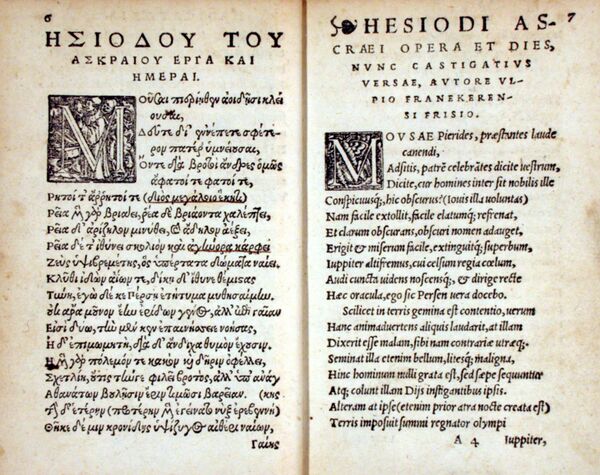 6
ΗΣΙΟΔΟΥ ΤΟΥ
ΑΣΚΡΑΙΟΥ ΕΡΓΑ ΚΑΙ
ΗΜΕΡΑΙ.
Μοῦσαι πιερίηθεν ἀοιδῇσι κλεί
ουσαι,
Δεῦτε δί' ἐννέπετε σφέτε-
ρον πατέρ' ὑμνείουσαι,
Ὅντε διὰ βροτοὶ ἄνδρες ὁμῶς
ἄφατοί τε φατοί τε,
Ῥητοί τ' ἄῤῥητοί τε διὸς μεγάλοιο ἕκητι.
Ῥεῖα μὲν γὰρ βριάει, ῥέα δὲ βριάοντα χαλέπτει,
Ῥεῖα δ' ἀρίζηλον μινύθει, καὶ ἄδηλον ἀέξει.
Ῥεῖα δέ τ' ἰθύνει σκολιὸν καὶ ἀγήνορα κάρφει
Ζεὺς ὑψιβρεμέτης, ὃς ὑπέρτατα δώματα ναίει.
Κλῦθι ἰδὼν ἀΐων τε, δίκῃ δ' ἴθυνε θέμιστας
Τύνη, ἐγὼ δέ κε Πέρσῃ ἐτήτυμα μυθησαίμην.
Οὐκ ἄρα μοῦνον ἔην ἐρίδων γένος, ἀλλ' ἐπὶ γαῖαν
Εἰσὶ δύω, τὴν μέν κεν ἐπαινήσειε νοήσας,
Ἡ δ' ἐπιμωμητή, διὰ δ' ἄνδιχα θυμὸν ἔχουσιν.
Ἡ μὲν γὰρ πόλεμόν τε κακὸν καὶ δῆριν ὀφέλλει,
Σχετλίη, οὔτις τήνγε φιλεῖ βροτός, ἀλλ' ὑπ' ἀνάγ
Ἀθανάτων βουλῇσιν ἔριν τιμῶσι βαρεῖαν. (κης
Τὴν δ' ἑτέρην (προτέρην μὲν ἐγείνατο νὺξ ἐρεβεννή)
Θῆκε δέ μιν κρονίδης ὑψίζυγος αἰθέρι ναίων,
Γαίης
7
HESIODI AS-
CRAEI OPERA ET DIES,
NVNC CASTIGATIVS
VERSAE, AVTORE VL-
PIO FRANEKEREN-
SI FRISIO.
MOVSAE Pierides, præstantes laude
canendi,
Adsitis, patrē celebrātes dicite uestrum,
Dicite, cur homines inter sit nobilis ille
Conspicuusq;, hic obscurus? (Iouis illa uoluntas)
Nam facile extollit, facile elatumq; refrenat,
Et clarum obscurans, obscuri nomen adauget,
Erigit & miserum facile, extinguitq; superbum,
Iuppiter altifremus, cui celsum regia cœlum,
Audi cuncta uidens noscensq;, & dirige recte
Hæc oracula, ego sic Persen uera docebo.
Scilicet in terris gemina est contentio, uerum
Hanc animaduertens aliquis laudarit, at illam
Dixerit esse malam, sibi nam contrariæ utræq;.
Seminat illa etenim bellum, litesq; maligna,
Hinc hominum nulli grata est, sed sæpe sequuntur
Atq; colunt illam Dijs instigantibus ipsis.
Alteram at ipse (etenim prior atra nocte creata est)
Terris imposuit summi regnator olympi
A 4 Iuppiter,